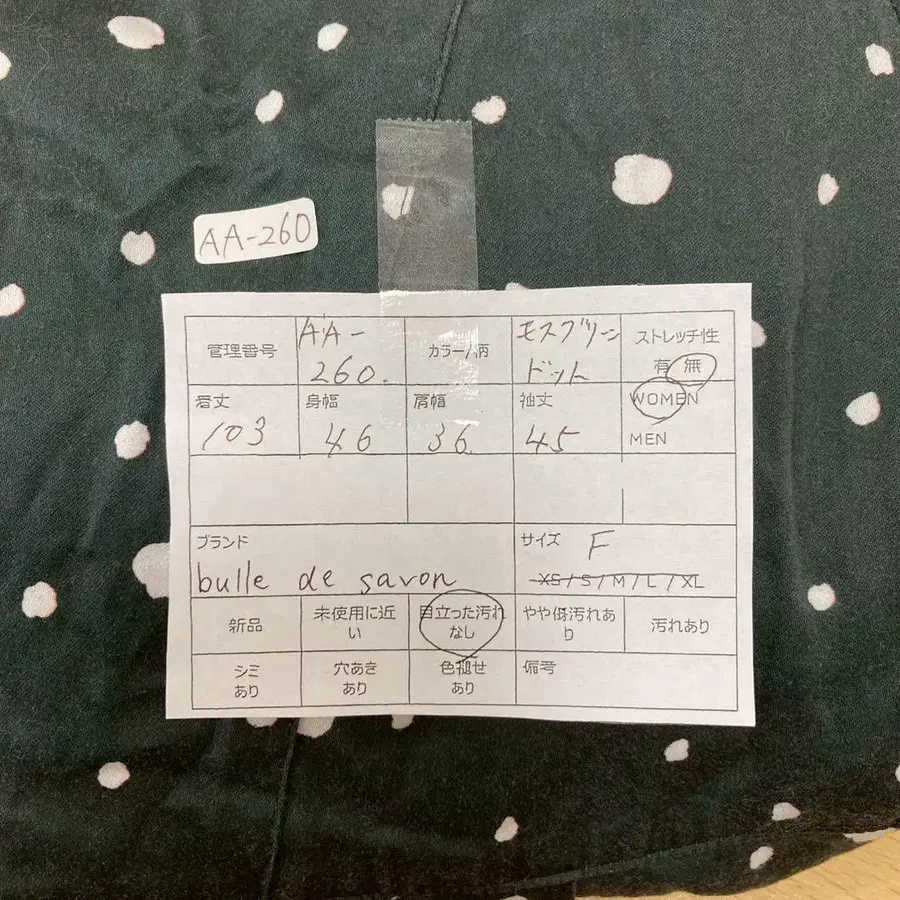 AA-260
管理番号
AA-
260.
カラー/柄
モスグリーン
ドット
ストレッチ性
有 無
着丈
103
身幅
46
肩幅
36
袖丈
45
WOMEN
MEN
ブランド
bulle de savon
サイズ F
XS / S / M / L / XL
新品
未使用に近
い
目立った汚れ
なし
やや傷汚れあ
り
汚れあり
シミ
あり
穴あき
あり
色褪せ
あり
備考